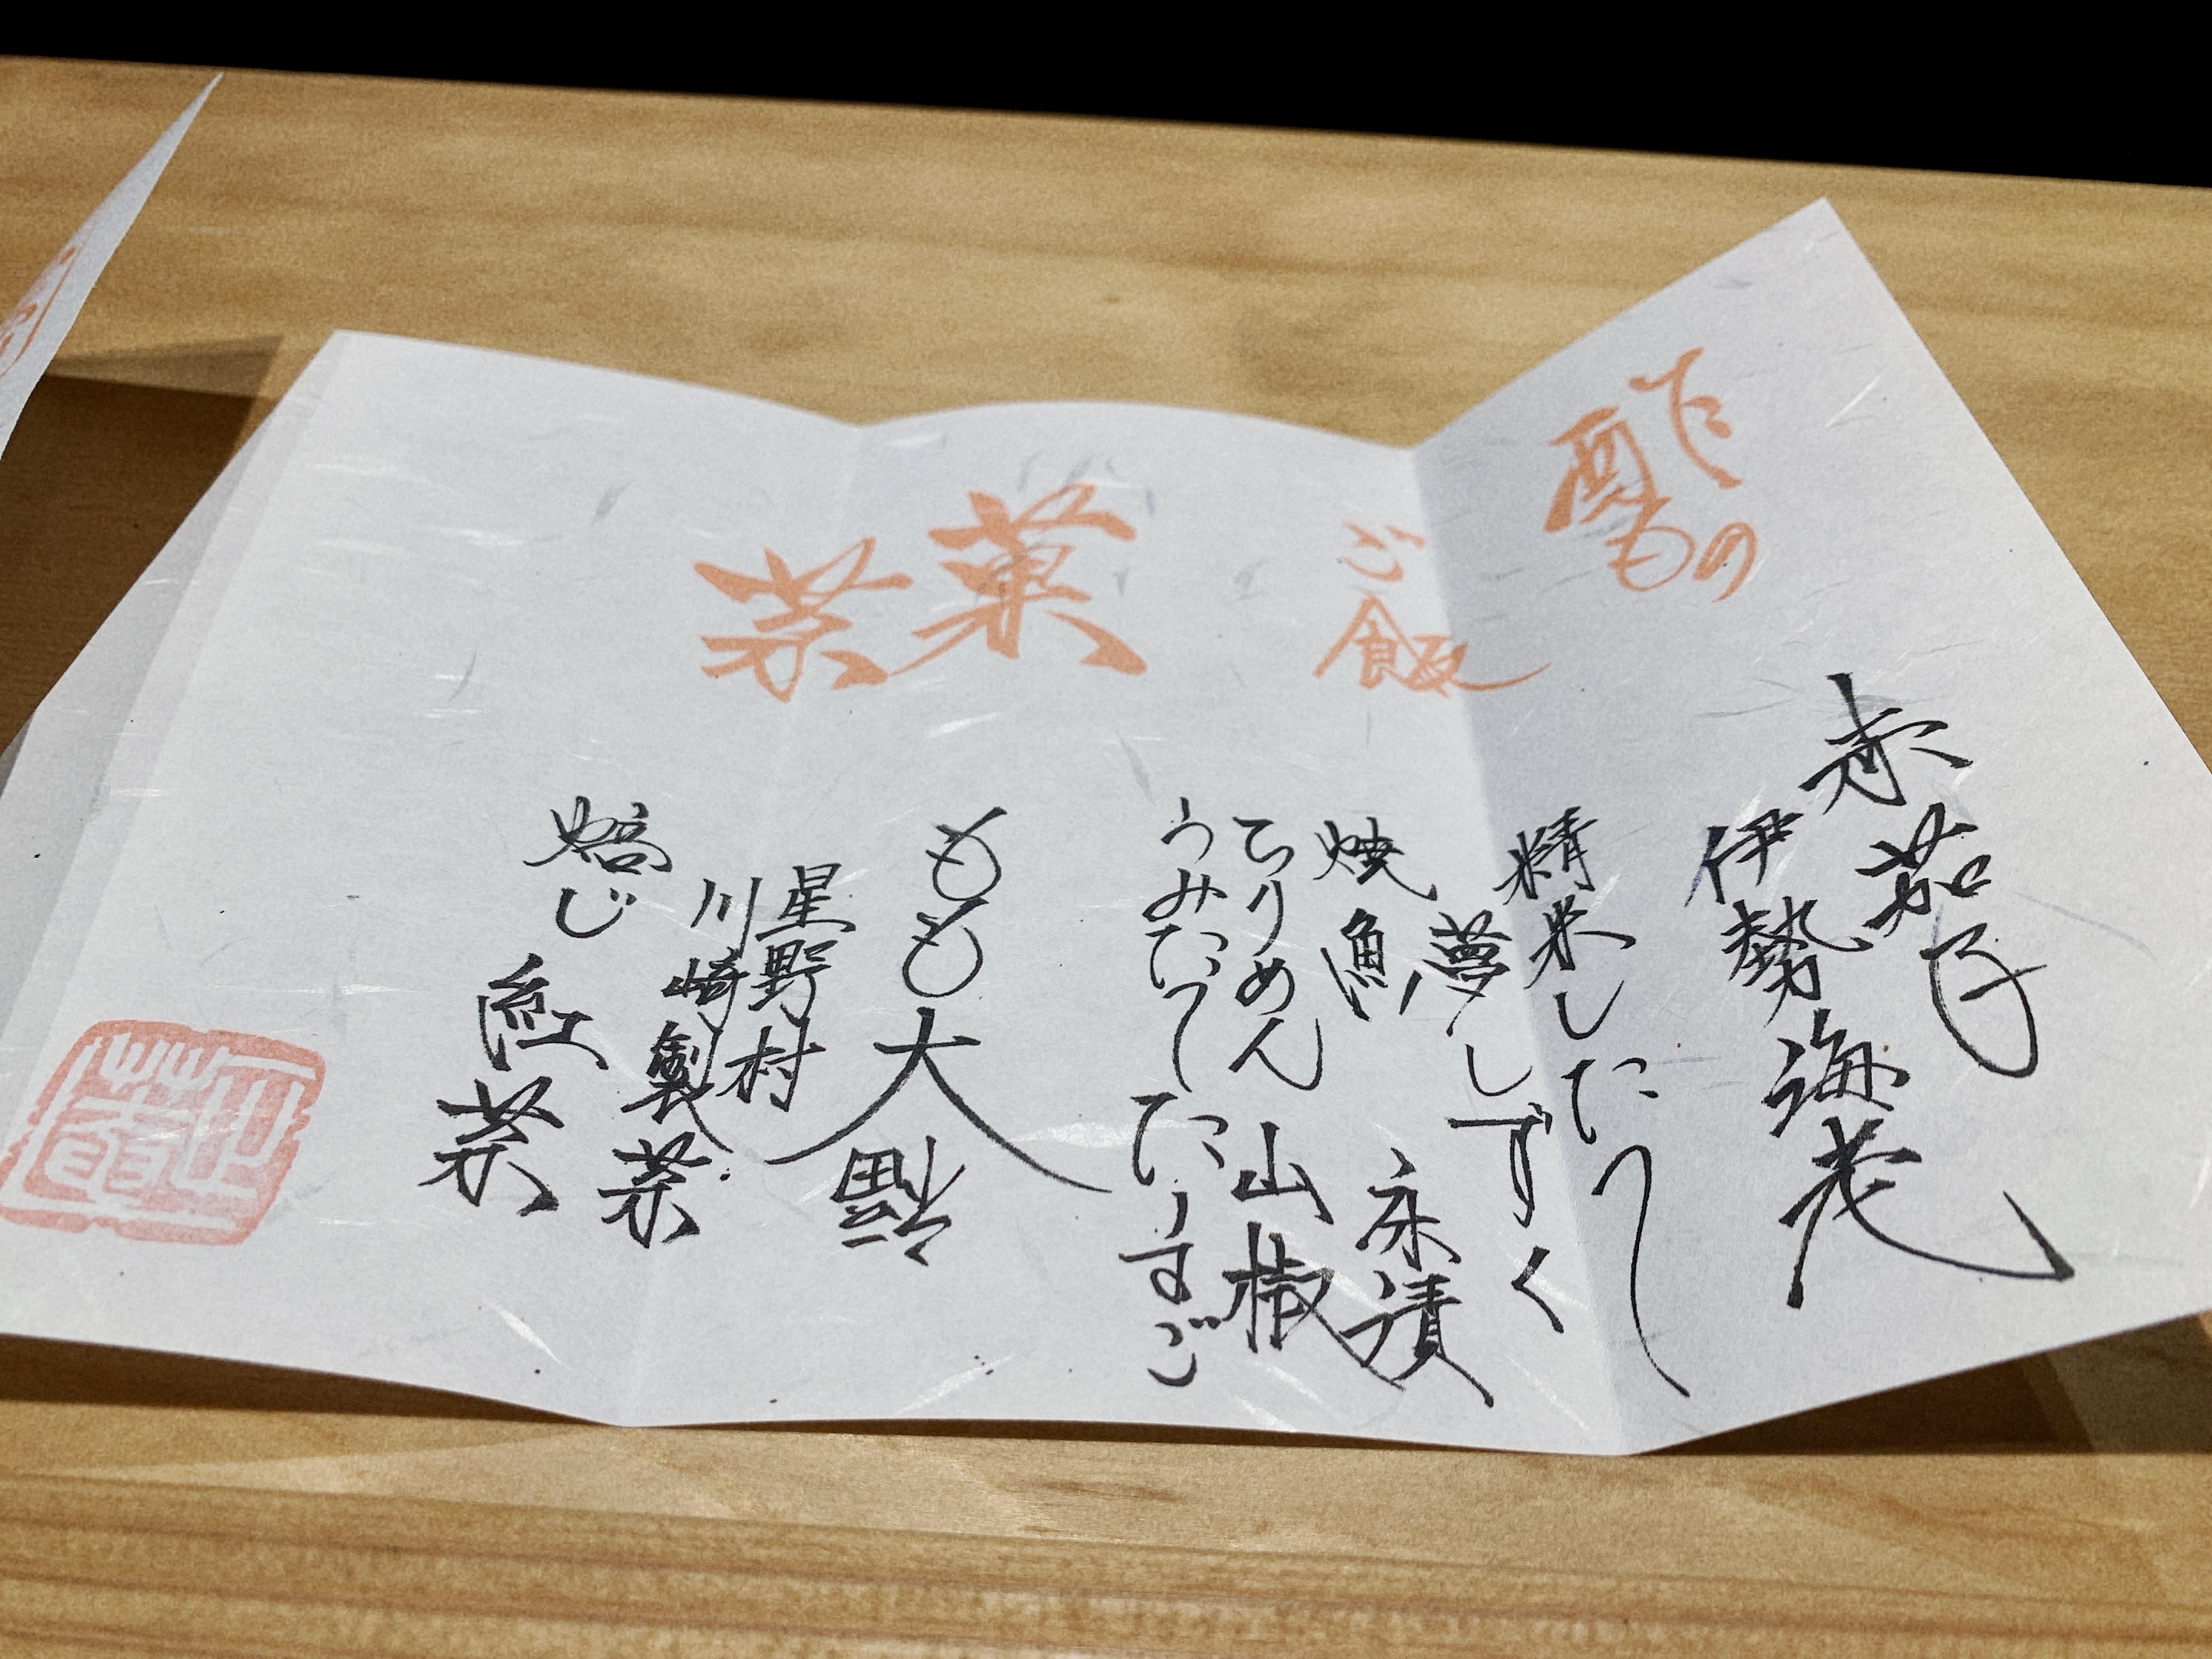 酢もの
赤茄子
伊勢海老
ご飯
精米したて
夢しずく
焼魚 床漬
ちりめん山椒
うみたてたまご
菓
もも大福
茶
星野村
川崎製茶
焙じ紅茶